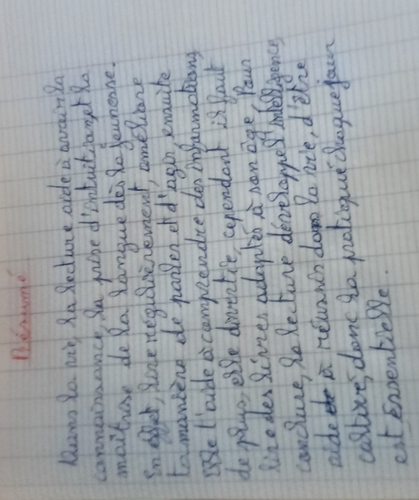 Résumé
Dans la vie, la lecture aide à avoir la
connaissance, la prise d'intuition et la
maîtrise de la langue dès la jeunesse.
En effet, lire régulièrement, améliore
ta manière de parler et d'agir ensuite
Elle l'aide à comprendre des informations,
de plus, elle divertie, cependant il faut
lire des livres adaptés à son âge. Pour
conclure, la lecture développe l'intelligence,
aide à réussir dans la vie, d'être
cultivé, donc la pratiqué chaque jour
est Essentielle.